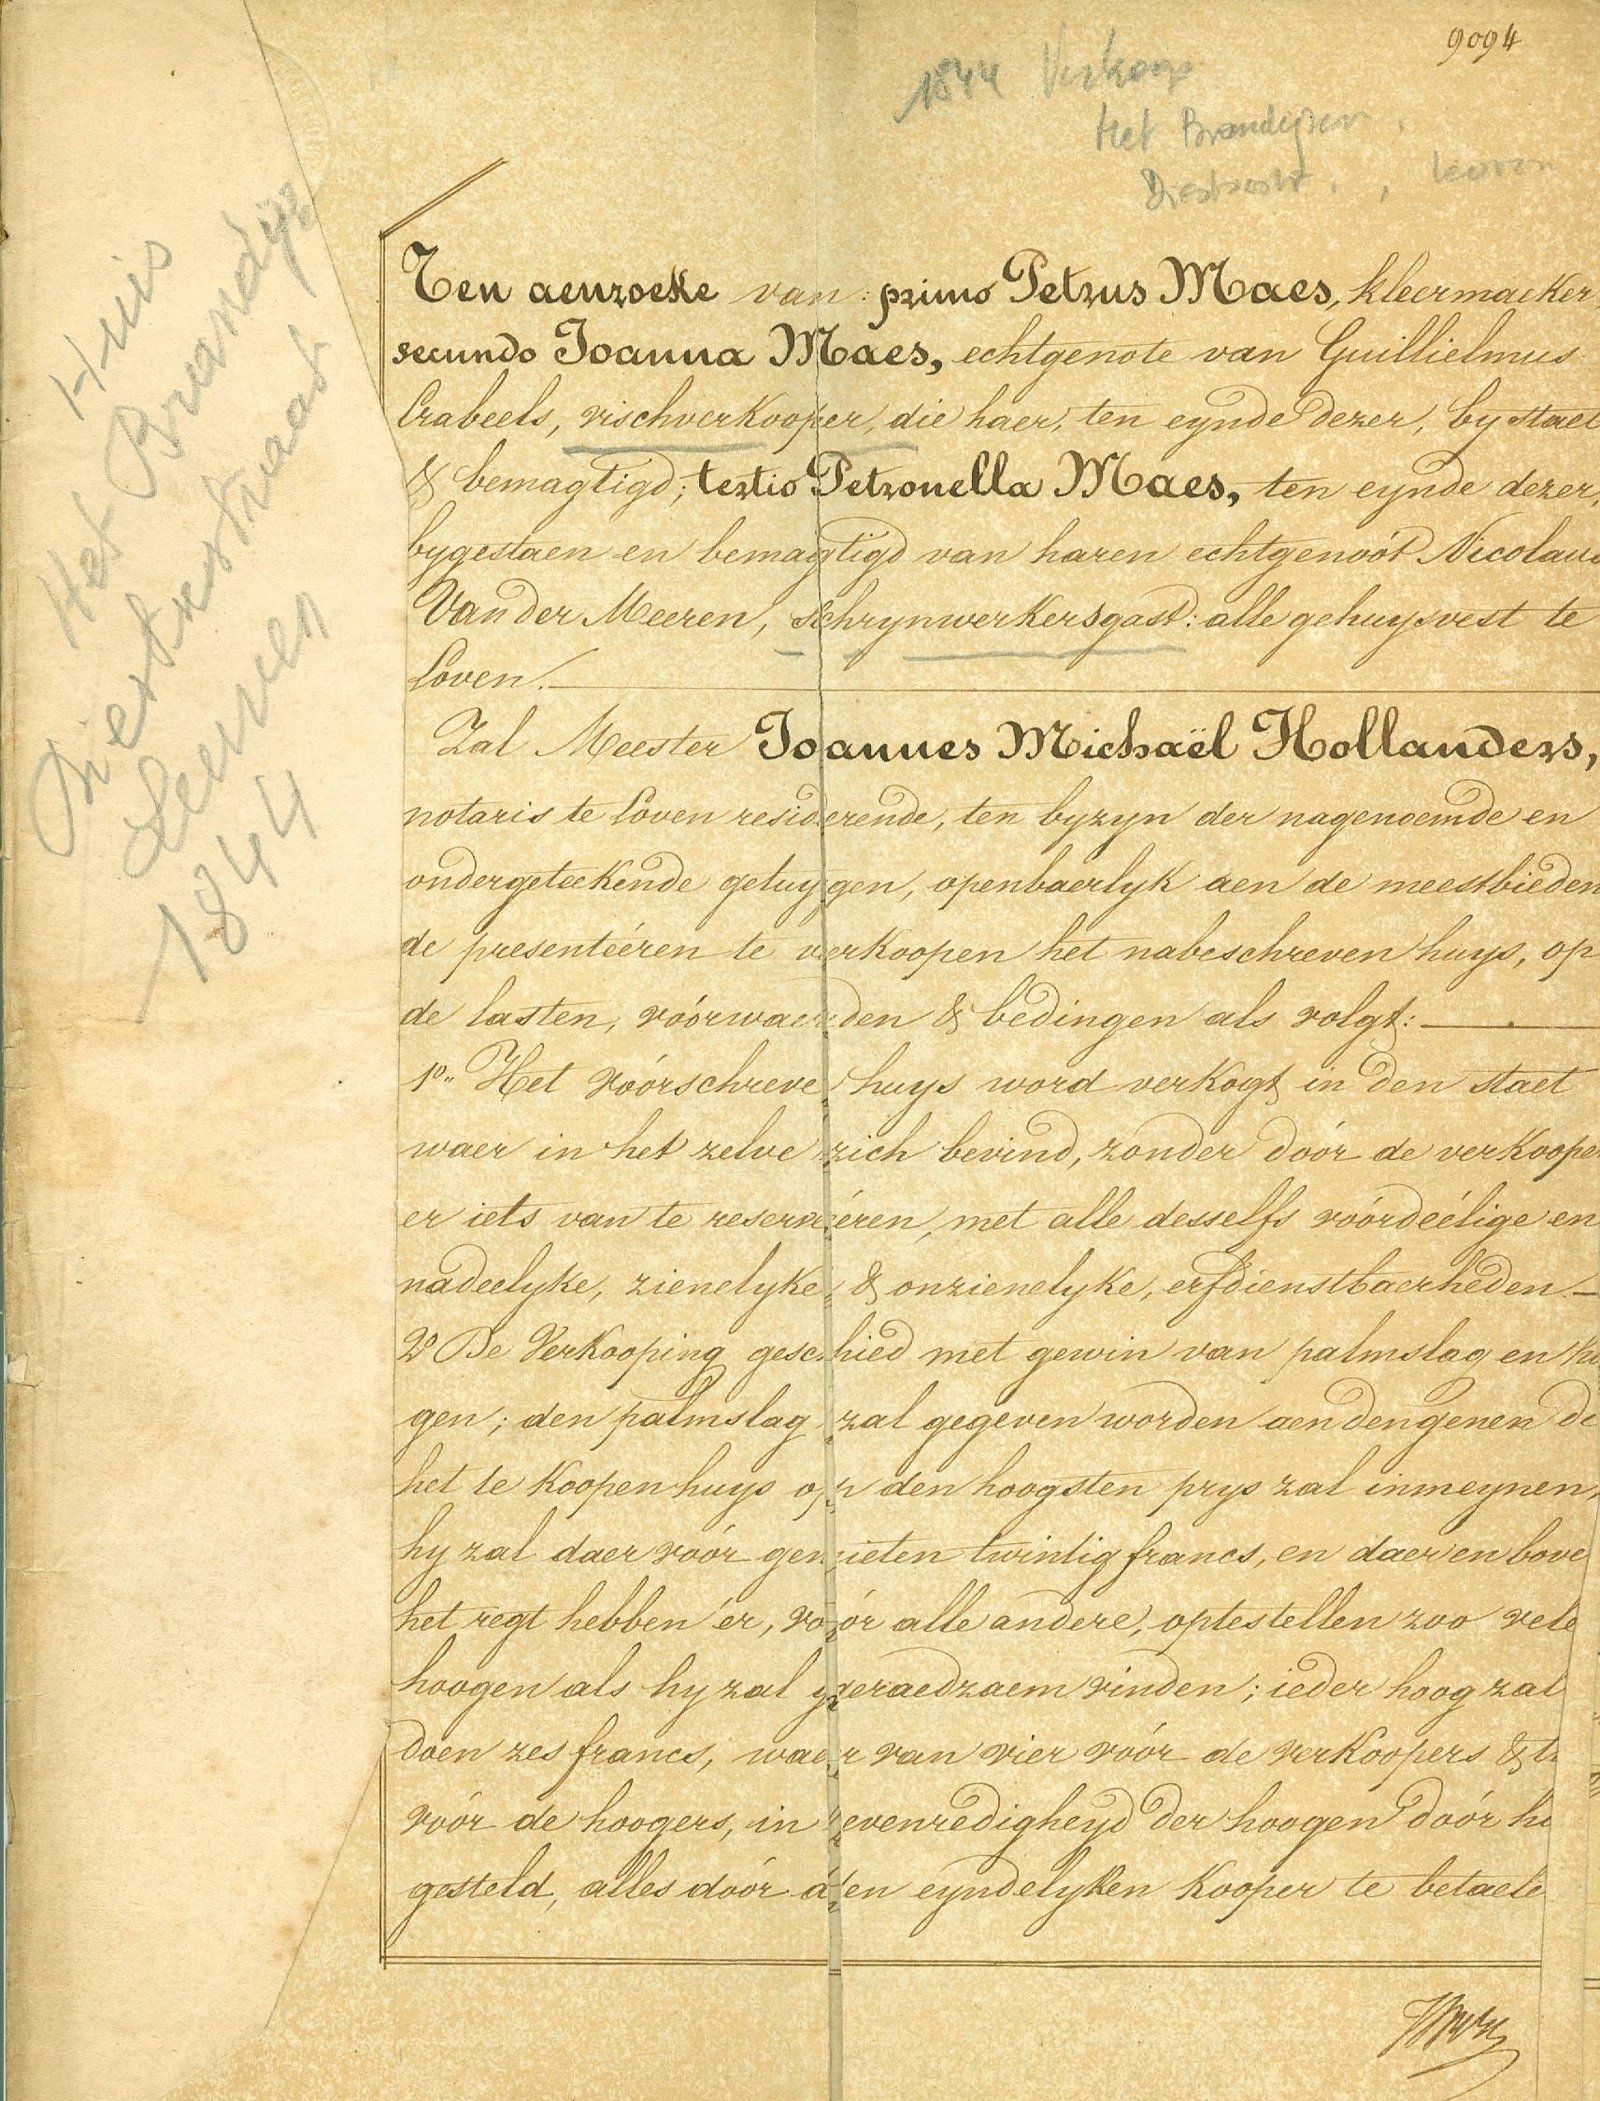 9094
1844 Verkoop
Het Brandyzer,
Diestsestr. , Leuven
Huis
Het Brandijze
Diestsestraat
Leuven
1844
Ten aenzoeke van : primo Petrus Maes, kleermaeker
secundo Joanna Maes, echtgenote van Guillielmus
Crabeels, vischverkooper, die haer, ten eynde dezer, bystaet
& bemagtigd; tertio Petronella Maes, ten eynde dezer,
bygestaen en bemagtigd van haren echtgenoót Nicolaus
Van der Meeren, schrynwerkersgast: alle gehuysvest te
Loven.
Zal Meester Joannes Michaël Hollanders,
notaris te Loven residerende, ten byzyn der nagenoemde en
ondergeteekende getuygen, openbaerlyk aen de meestbieden
de presentéeren te verkoopen het nabeschreven huys, op
de lasten, vóórwaerden & bedingen als volgt:
1º Het vóórschreve huys word verkogt in den staet
waer in het zelve zich bevind, zonder dóór de verkooper
er iets van te reservéren, met alle desselfs vóórdéélige en
nadeelyke, zienelyke & onzienelyke, erfdienstbaerheden
2º De Verkooping geschied met gewin van palmslag en
gen; den palmslag zal gegeven worden aen dengenen de
het te koopen huys op den hoogsten prys zal inmeynen,
hy zal daer vóór genieten twintig francs, en daer en bove
het regt hebben er, vóór alle andere, optestellen zoo vele
hoogen als hy zal geraedzaem vinden; ieder hoog zal
doen zes francs, waer van vier vóór de verkoopers &
vóór de hoogers, in evenredigheyd der hoogen dóór
gesteld, alles dóór den eyndelyken kooper te betaele